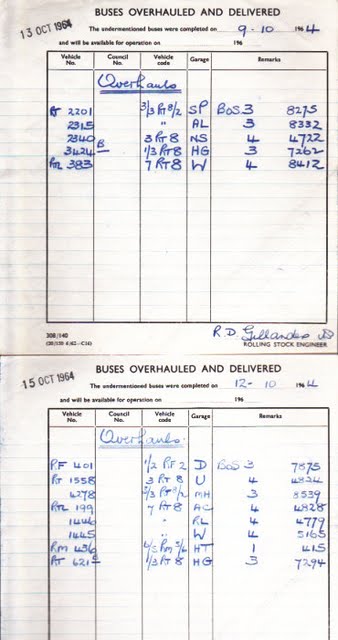 BUSES OVERHAULED AND DELIVERED
13 OCT 1964
The undermentioned buses were completed on 9-10 1964
and will be available for operation on 196
Vehicle No. Council No. Vehicle code Garage Remarks
Overhauls
RT 2201 3/3 RT 8/2 SP BOS 3 8275
2315 " AL 3 8332
2340 3 RT 8 NS 4 4722
3424 B 1/3 RT 8 HG 3 7262
RTL 383 7 RT 8 W 4 8412
308/140
R.D Gillandes
ROLLING STOCK ENGINEER
BUSES OVERHAULED AND DELIVERED
15 OCT 1964
The undermentioned buses were completed on 12-10 1964
and will be available for operation on 196
Vehicle No. Council No. Vehicle code Garage Remarks
Overhauls.
RF 401 1/2 RF 2 D BOS 3 7875
RT 1558 3 RT 8 U 4 4824
4278 MH 3 8539
RTL 199 7 RT 8 AC 4 4828
1446 " RL 4 4779
1445 " W 4 5165
RM 436 HT 1 415
RT 621 1/3 RT 8 HG 3 7294